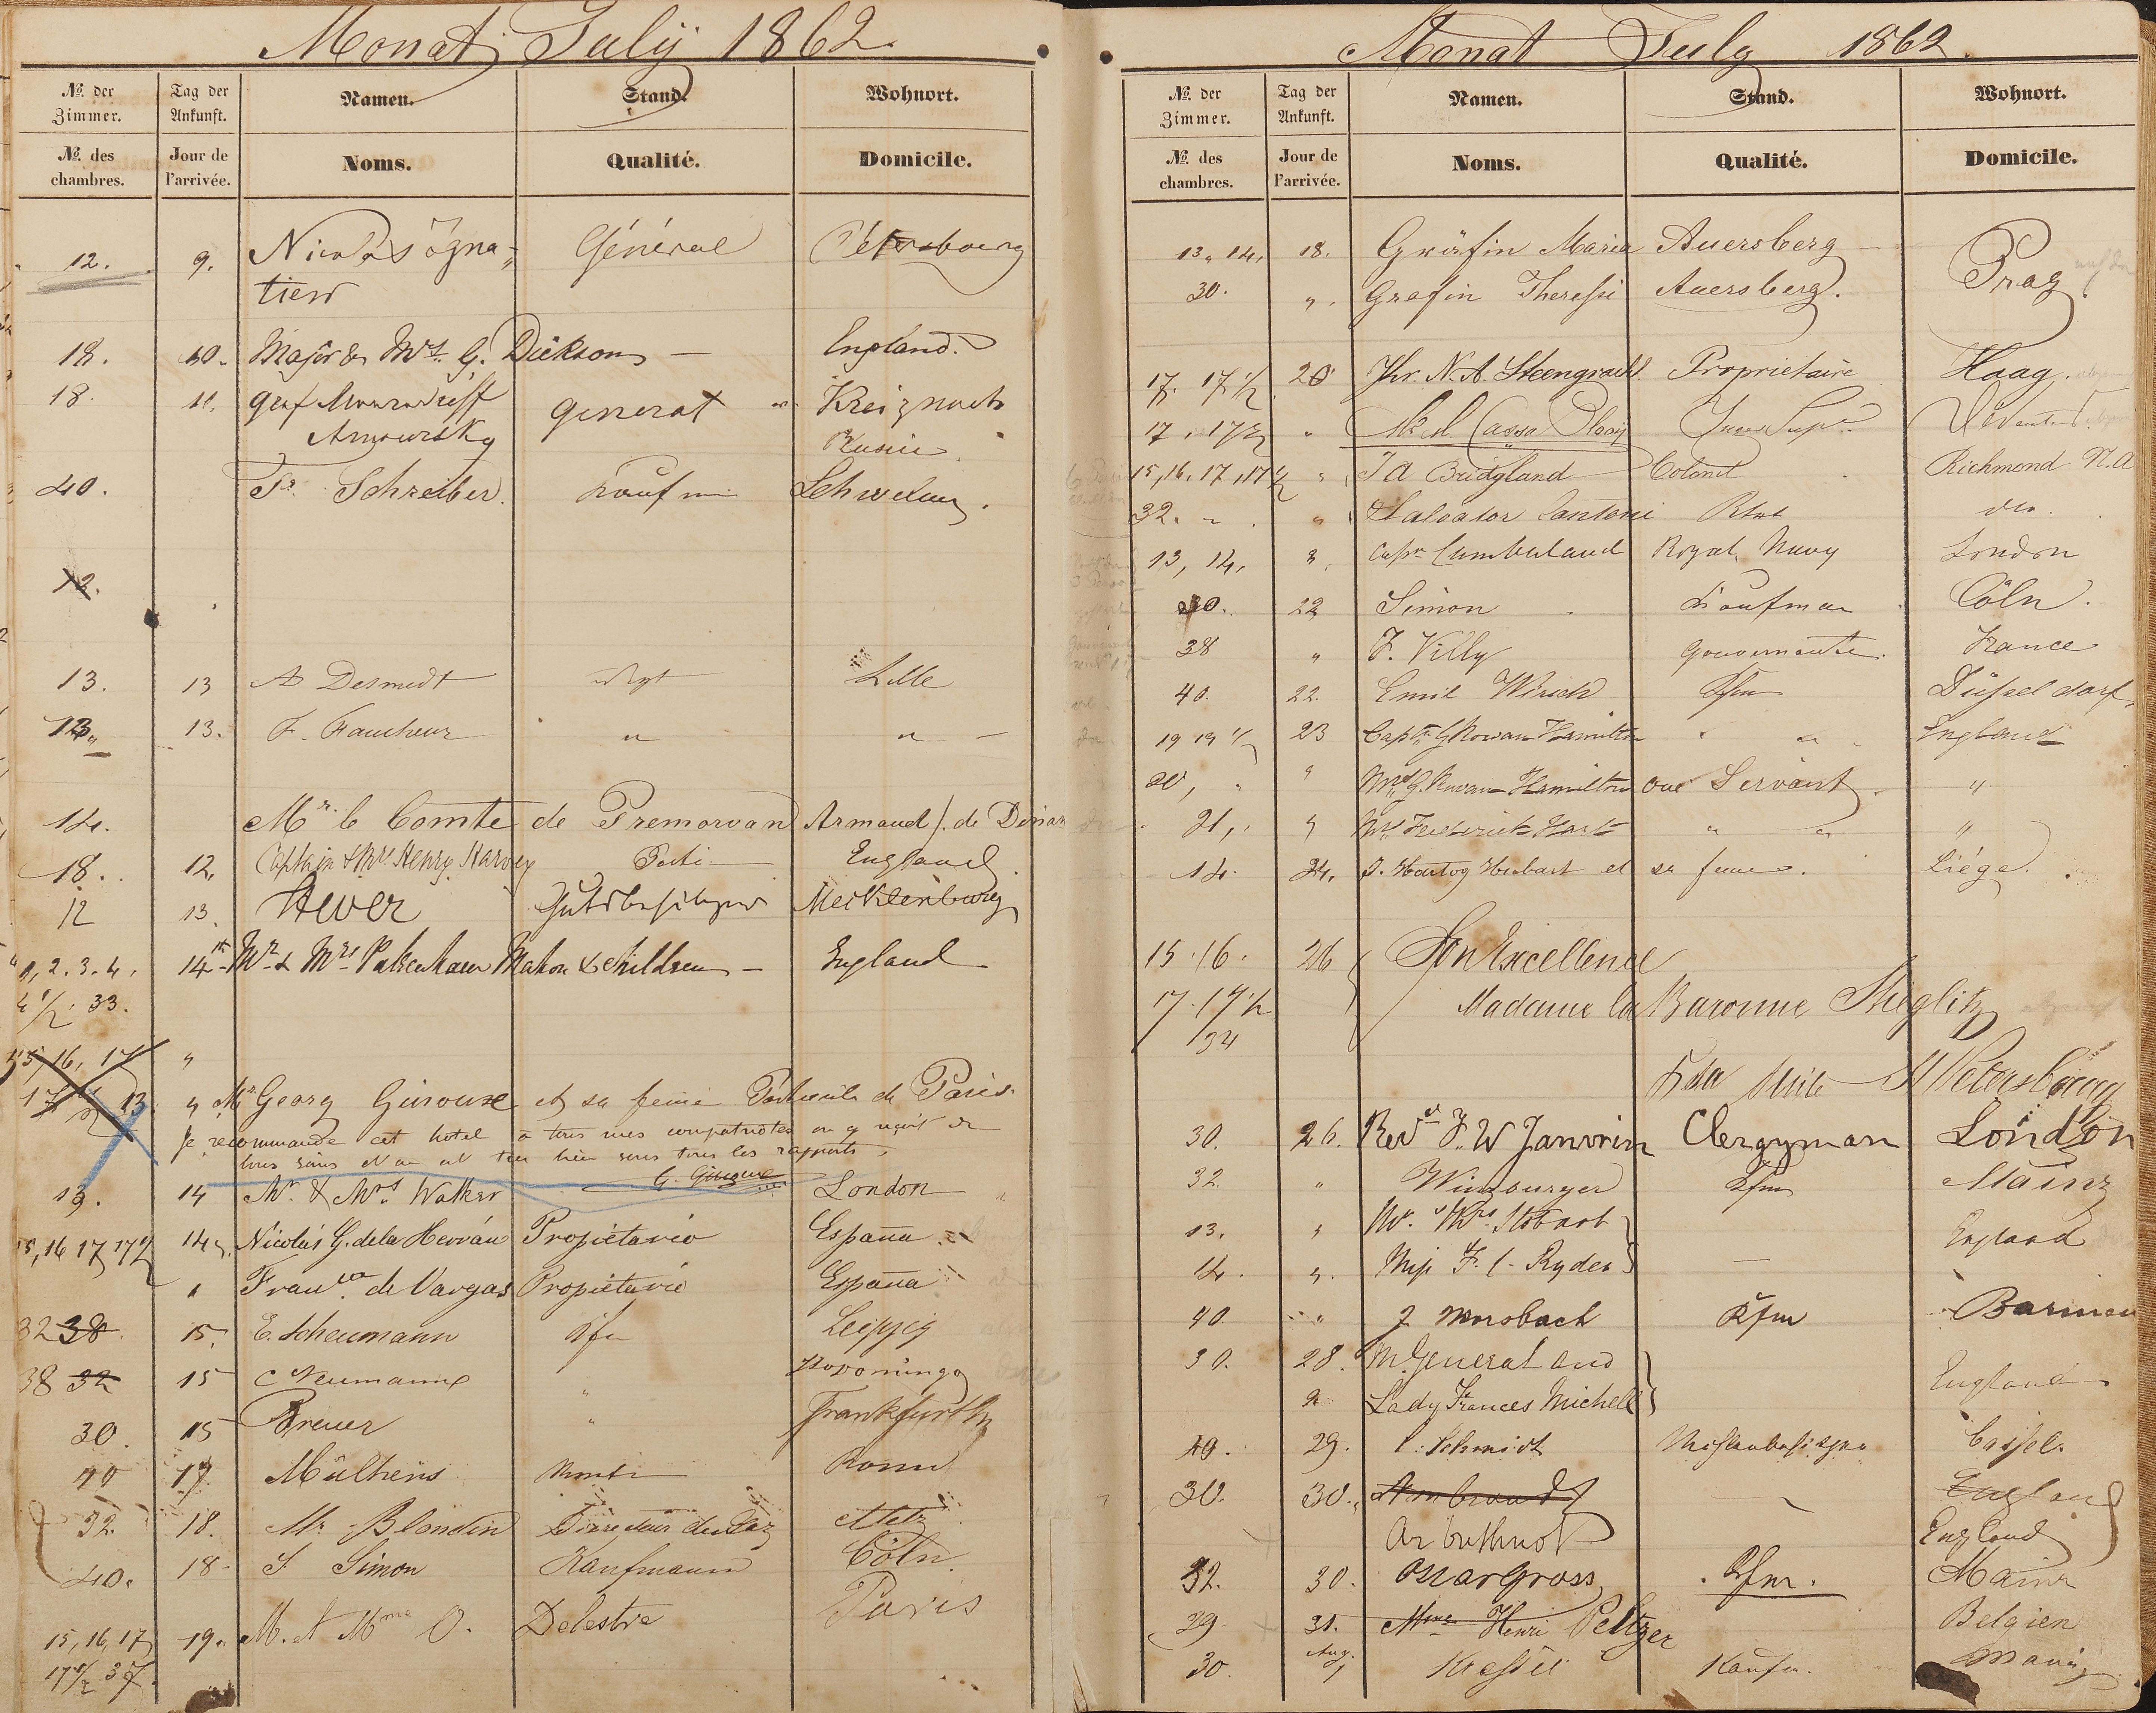 Monat July 1862.
№ der Zimmer. Tag der Ankunft. Namen. Stand. Wohnort.
№ des chambres. Jour de l'arrivée. Noms. Qualité. Domicile.
12. 9. Nicolas Ignatieff Général Petersbourg
18. 10. Major & Mrs. G. Dickson — England.
18. 11. Graf General Kreiznach
Rusie.
40. Fr. Schreiber. Kaufm Schwelm.
12.
13. 13 A Desmedt Rgt Lille
13. F. Faucheur " "
14. Mr. le Comte de Premorvan Armand /. de Dinan
18. 12. Captain & Mrs Henry Harvey England
12 13. Hever Gutsbesitzer Mecklenburg
1, 2. 3. 4. 14th Mr & Mrs Pakenham Mahon & children — England
4 1/2, 33.
15, 16, 17 "
17 1/2 13 " Mr Georg Girouse et sa femme de Paris.
Je recommande cet hotel à tous mes compatriotes on y reçoit de
bons soins et on est très bien sous tous les rapports.
G. Girouse
13. 14 Mr & Mrs Walker London
15, 16 17 17 1/2 14 Nicolás G. de la Herrán Propietario España
" Franco. de Vargas Propietario España
32 38 15. E. Scheumann Kfm Leipzig
38 32 15 C Neumann "
30. 15 Breuer " Frankfurth
40 17. Mülhens
32. 18. Mr. Blondin Directeur du Gaz Metz
40. 18 S Simon Kaufmann Cöln.
15, 16, 17 19. M. et Mme O. Delestre Paris
17 1/2 37.
Monat July 1862.
№ der Zimmer. Tag der Ankunft. Namen. Stand. Wohnort.
№ des chambres. Jour de l'arrivée. Noms. Qualité. Domicile.
13. 14. 18. Gräfin Maria Auersberg Prag
30. ". Grafin Theresie Auersberg.
17. 17 1/2 20 Jhr. N. A. Steengracht Proprietaire Haag.
17, 17 1/2 "
15, 16, 17, 17 1/2 " J A Bridgland Colonel Richmond N. A
32. " Salvator Cantoni Rtnt do.
13, 14, " Capn Cumberland Royal Navy London
20. 22 Simon Kaufman Cöln.
38 " F. Villy Gouvernante. France
40. 22. Emil Wirsch Kfm Düsseldorf,
19 19 1/2 23 Captn G Rowan Hamilton " " England
20, " " Mrs G. Rowan Hamilton one Servant "
21, " Mrs Frederick Hart " " "
14. 24. J. Hartog Hubart et sa femme. Liége.
15. 16. 26 Son Excellence
17. 17 1/2 Madame la Baronne Stieglitz
34
St Petersbourg
30. 26. Revd F. W Janvrin Clergyman London
32. " Winzburger Kfm Mainz
13. " Mr. & Mrs Stobart England
14. ". Miss F. C. Ryder —
40. " J Morsbach Kfm Barmen
30. 28. M. General and England
" Lady Frances Michell
19. 29. C. Schmidt Cassel.
30. 30. England
Arbuthnot England
32. 30. Oscar Gross Kfm. Mainz
29 31. Mme Henri Peltzer Belgien
30. Aug. 1 Kessel Kaufm. Mainz